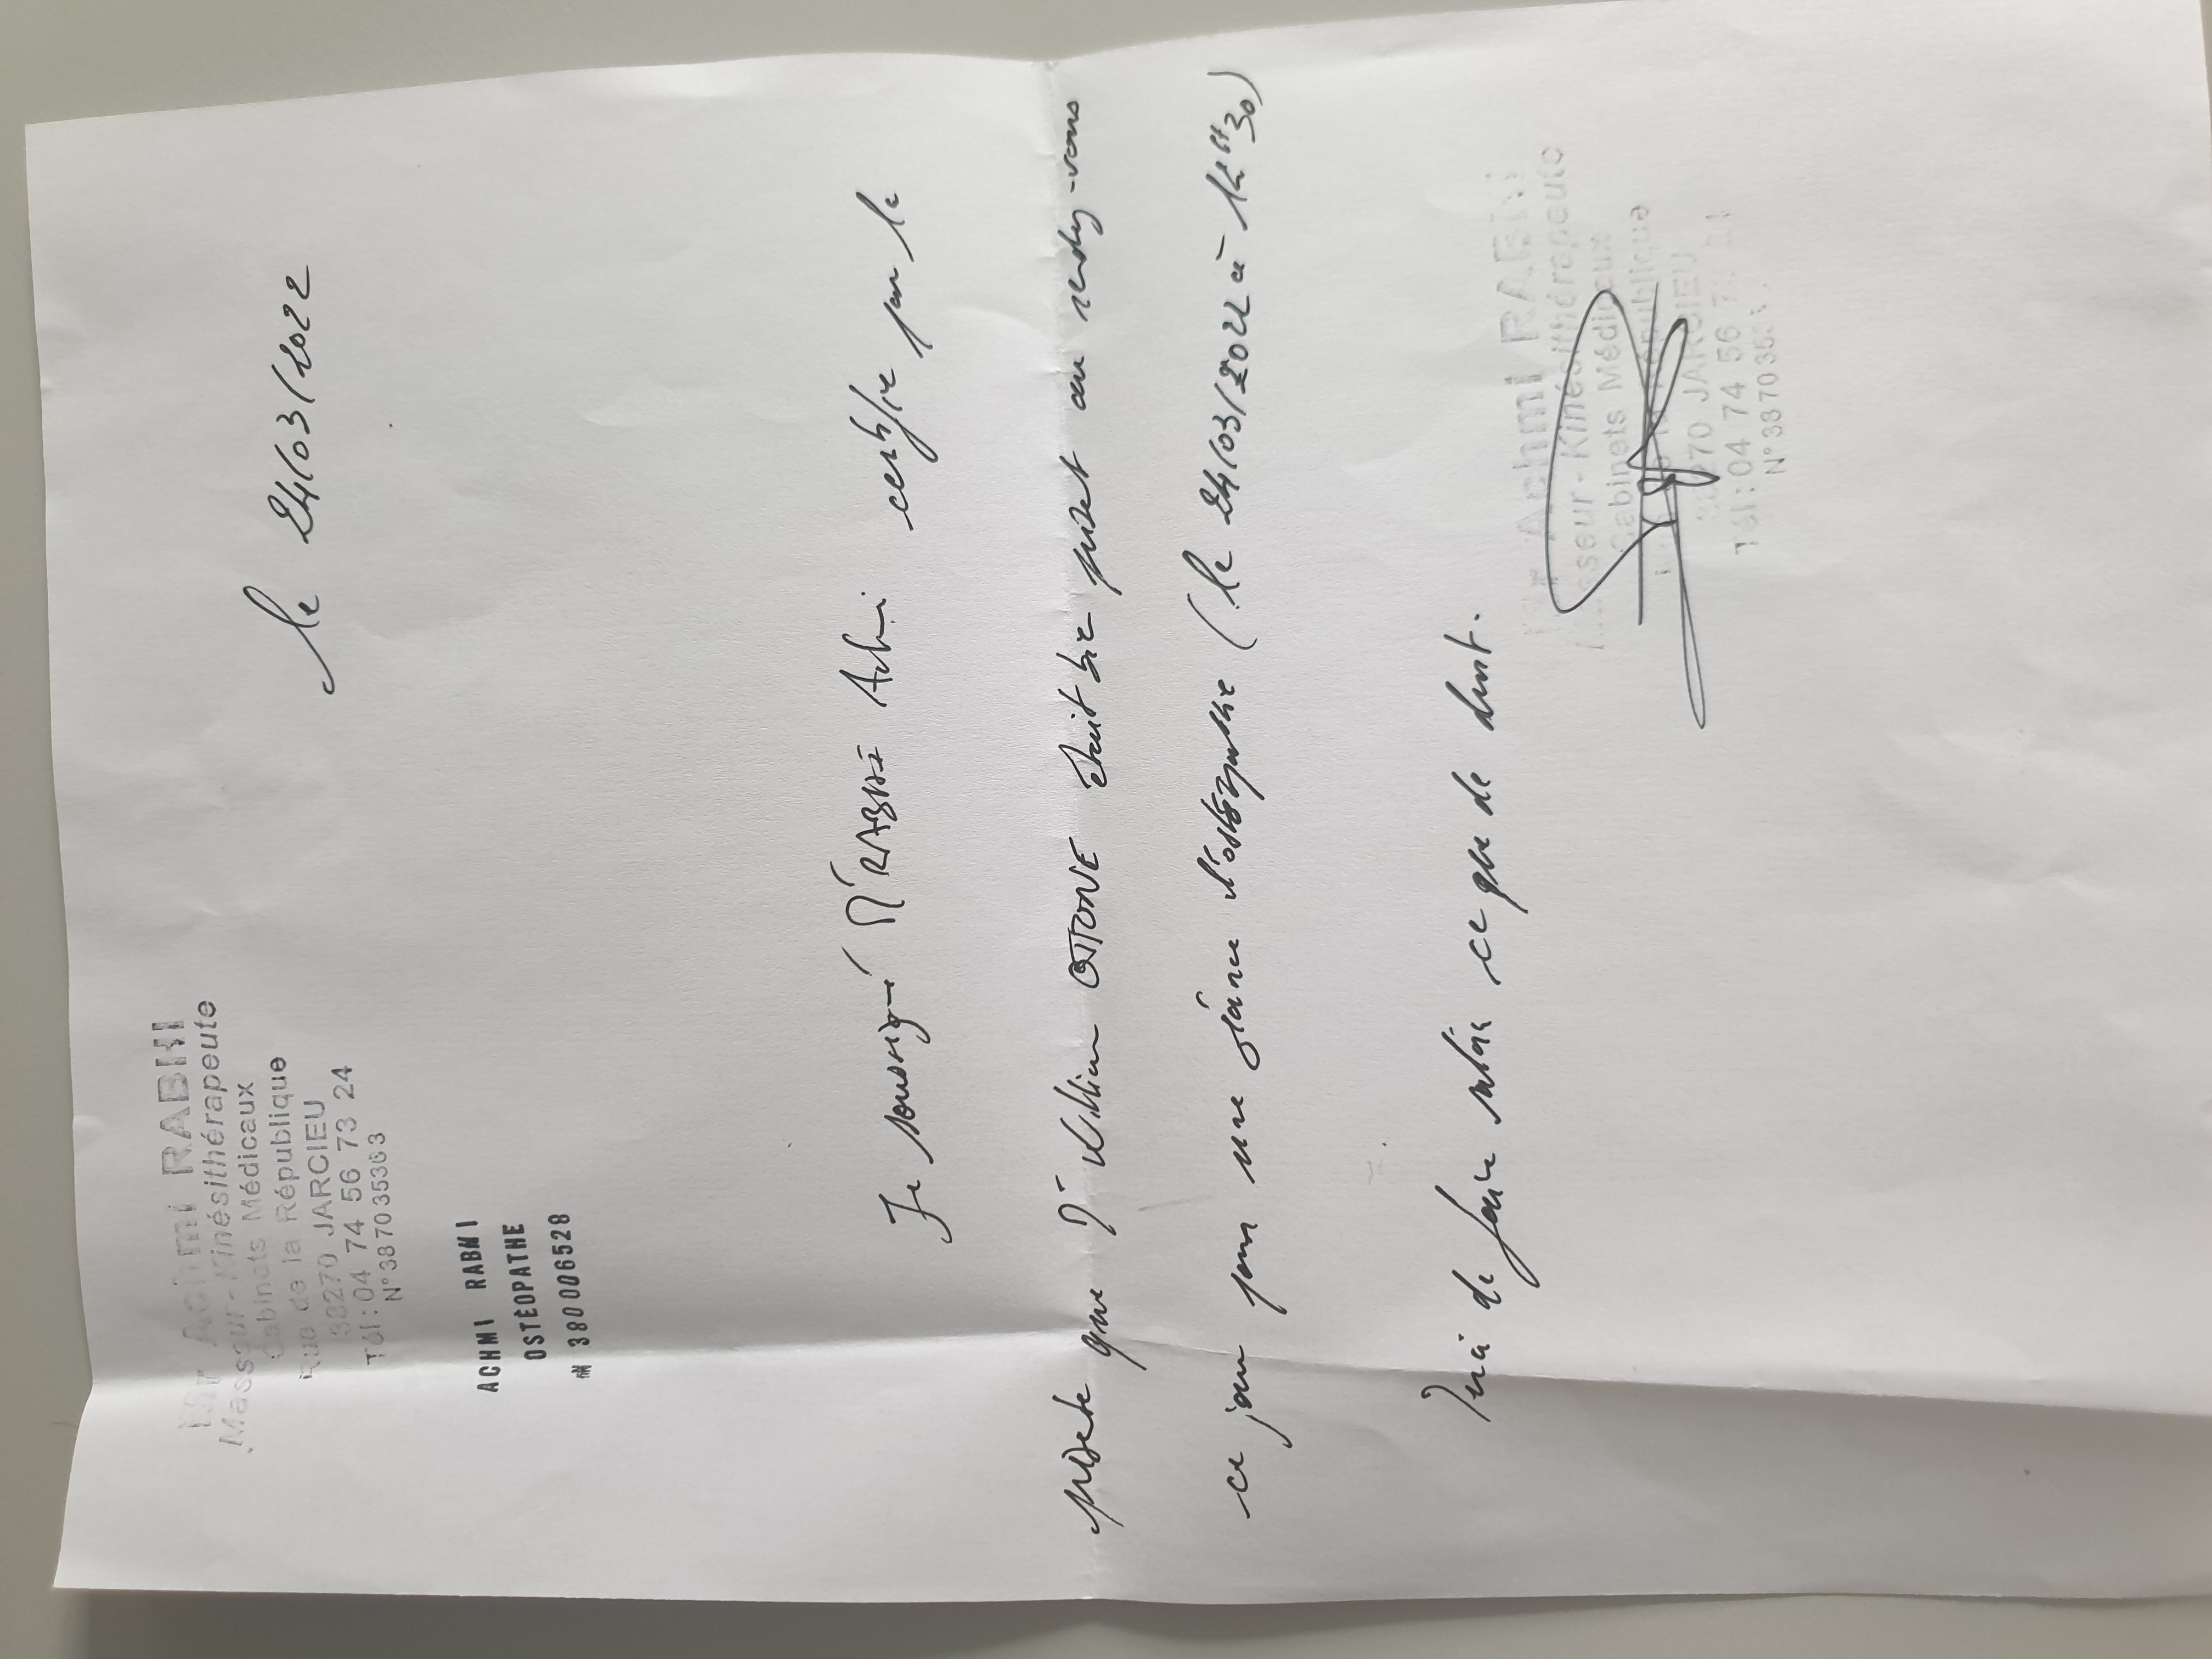 Mr Achmi RABHI
Masseur-Kinésithérapeute
Cabinets Médicaux
Rue de la République
38270 JARCIEU
Tél : 04 74 56 73 24
N° 38 70 3536 3
le 24/03/2022
ACHMI RABHI
OSTÉOPATHE
N 380006528
Je soussigné Mr RABHI Achmi certifie par la
présente que Mr William OTTONE était bien présent au rendez-vous
ce jour pour une séance d'ostéopathie (le 24/03/2022 à 12H30)
Merci de faire valoir ce que de droit.
Mr Achmi RABHI
Masseur-Kinésithérapeute
Cabinets Médicaux
République
38270 JARCIEU
Tél : 04 74 56 7
N° 38 70 353